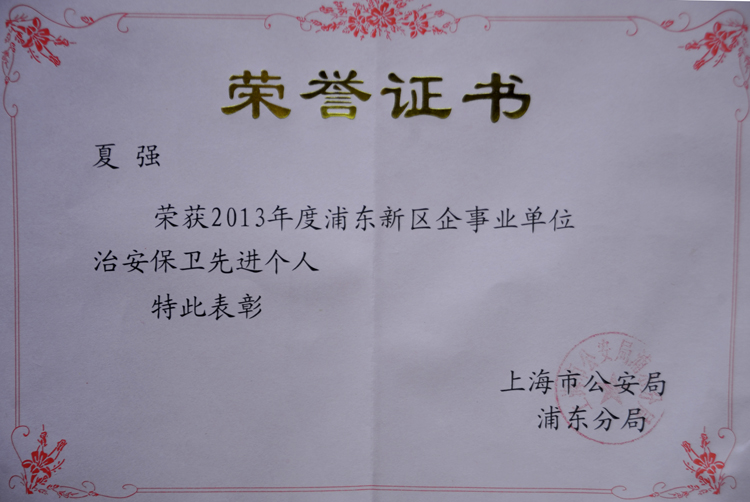 荣誉证书
夏 强
荣获2013年度浦东新区企事业单位
治安保卫先进个人
特此表彰
上海市公安局
浦东分局